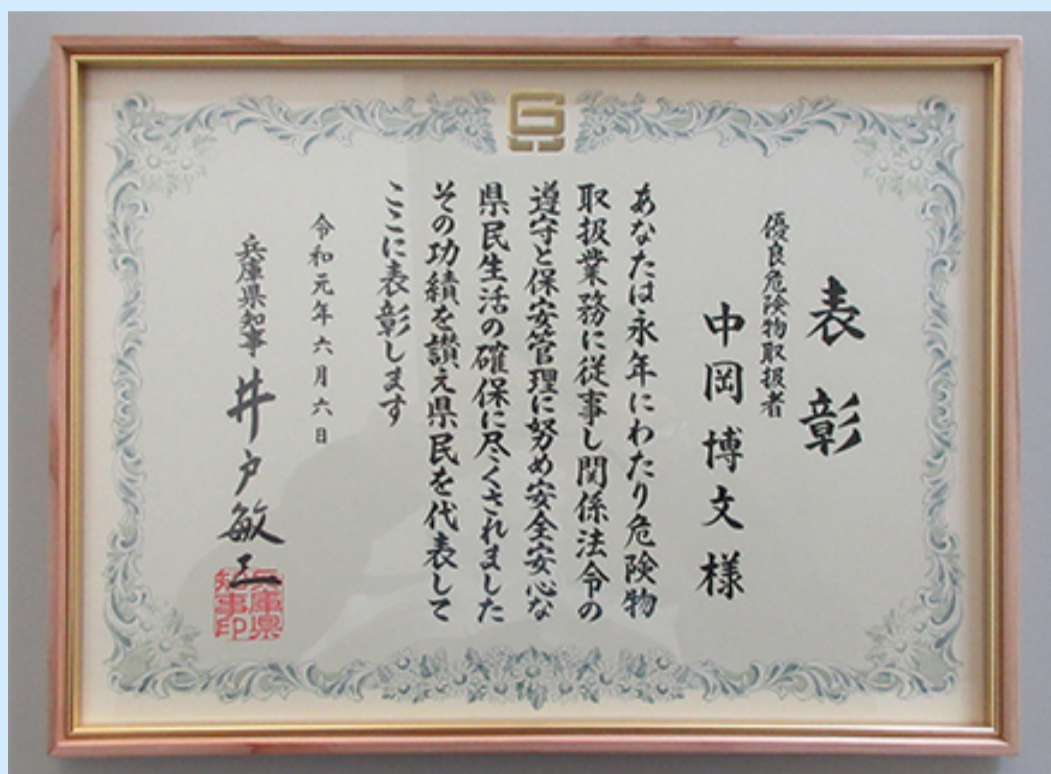 表彰
優良危険物取扱者
中岡博文様
あなたは永年にわたり危険物
取扱業務に従事し関係法令の
遵守と保安管理に努め安全安心な
県民生活の確保に尽くされました
その功績を讃え県民を代表して
ここに表彰します
令和元年六月六日
兵庫県知事 井戸敏三
兵庫県
知事印